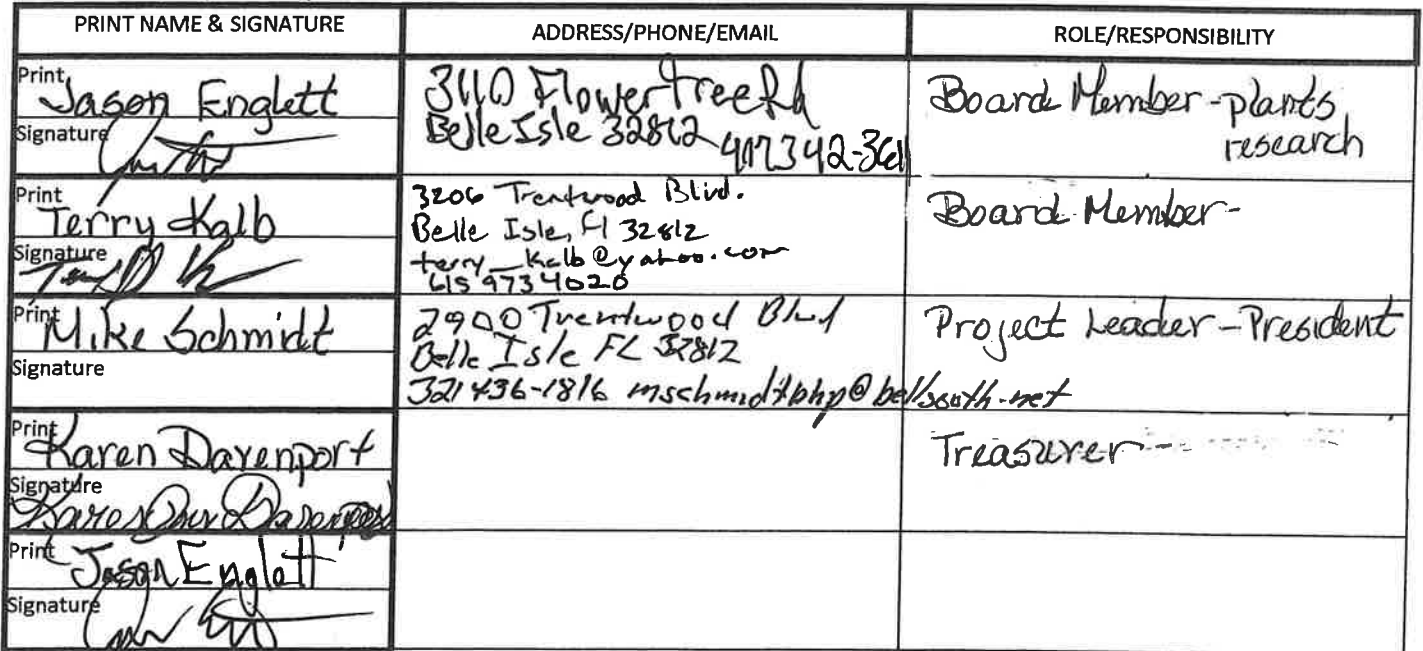 PRINT NAME & SIGNATURE
ADDRESS/PHONE/EMAIL
ROLE/RESPONSIBILITY
Print Jason Englett
Signature
3110 Flowertree Rd
Belle Isle 32812
Board Member - plants
research
Print Terry Kalb
Signature
3206 Trentwood Blvd.
Belle Isle, Fl 32812
terry_kalb@yahoo.com
615 973 4020
Board Member -
Print Mike Schmidt
Signature
2900 Trentwood Blvd
Belle Isle FL 32812
321 436-1816 mschmidtbhp@bellsouth.net
Project Leader - President
Print Karen Davenport
Signature
Treasurer
Print Jason Englett
Signature